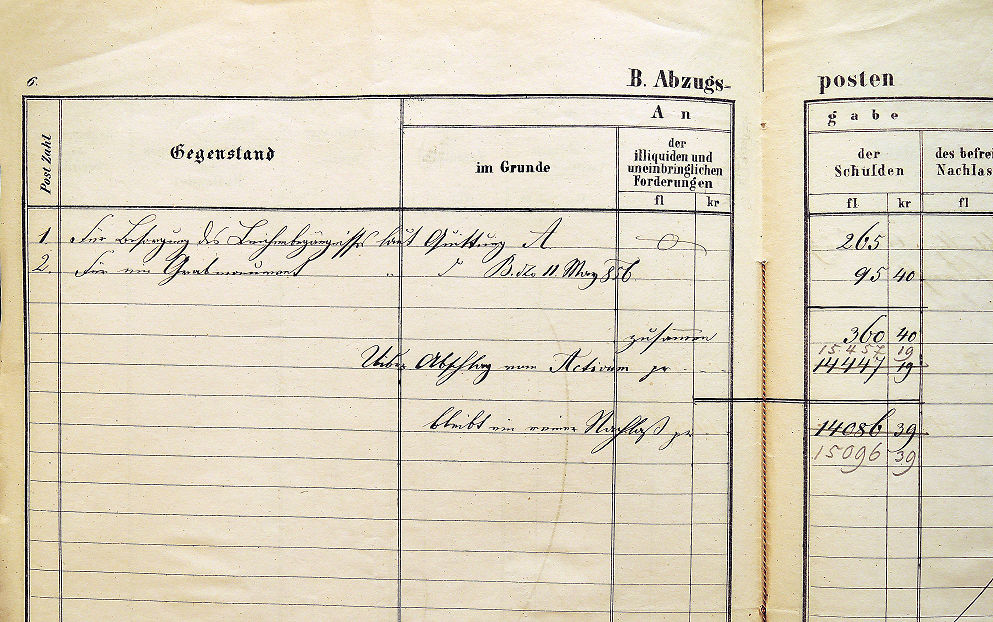 6.
B. Abzugs-posten
An gabe
Post Zahl
Gegenstand
im Grunde
der illiquiden und uneinbringlichen Forderungen
der Schulden
des befrei
Nachlas
fl kr fl kr fl
1. Für Besorgung des Leichenbegängnisses laut Quittung A 265
2. Für ein Grabmonument " B. dto 11. May 856. 95 40
zusammen 360 40
15457 19
Ueber Abschlag vom Activum pr 14447 19
bleibt ein reiner Nachlaß pr 14086 39
15096 39